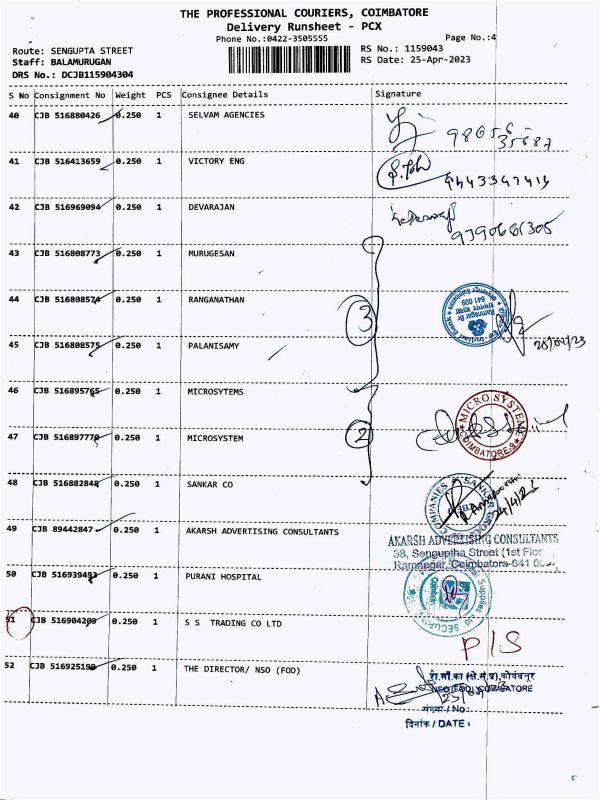 THE PROFESSIONAL COURIERS, COIMBATORE
Delivery Runsheet - PCX
Phone No.:0422-3505555
Page No.:4
Route: SENGUPTA STREET
RS No.: 1159043
Staff: BALAMURUGAN
RS Date: 25-Apr-2023
DRS No.: DCJB115904304
S No Consignment No Weight PCS Consignee Details Signature
40 CJB 516880426 0.250 1 SELVAM AGENCIES
41 CJB 516413659 0.250 1 VICTORY ENG
42 CJB 516969094 0.250 1 DEVARAJAN
9790661305
43 CJB 516808773 0.250 1 MURUGESAN
44 CJB 516808574 0.250 1 RANGANATHAN
3
641 009
45 CJB 516808575 0.250 1 PALANISAMY
46 CJB 516895765 0.250 1 MICROSYTEMS
MICRO SYSTEM
COIMBATORE-9
47 CJB 516897778 0.250 1 MICROSYSTEM
2
48 CJB 516882848 0.250 1 SANKAR CO
49 CJB 89442847 0.250 1 AKARSH ADVERTISING CONSULTANTS
AKARSH ADVERTISING CONSULTANTS
38, Senguptha Street (1st Floor
Ramnagar, Coimbatore-641
50 CJB 516939493 0.250 1 PURANI HOSPITAL
51 CJB 516904209 0.250 1 S S TRADING CO LTD
P/S
52 CJB 516925199 0.250 1 THE DIRECTOR/ NSO (FOD)
रा.सां.का (क्षे.सं.प्र),कोयंबत्तूर
संख्या / No:
दिनांक / DATE :